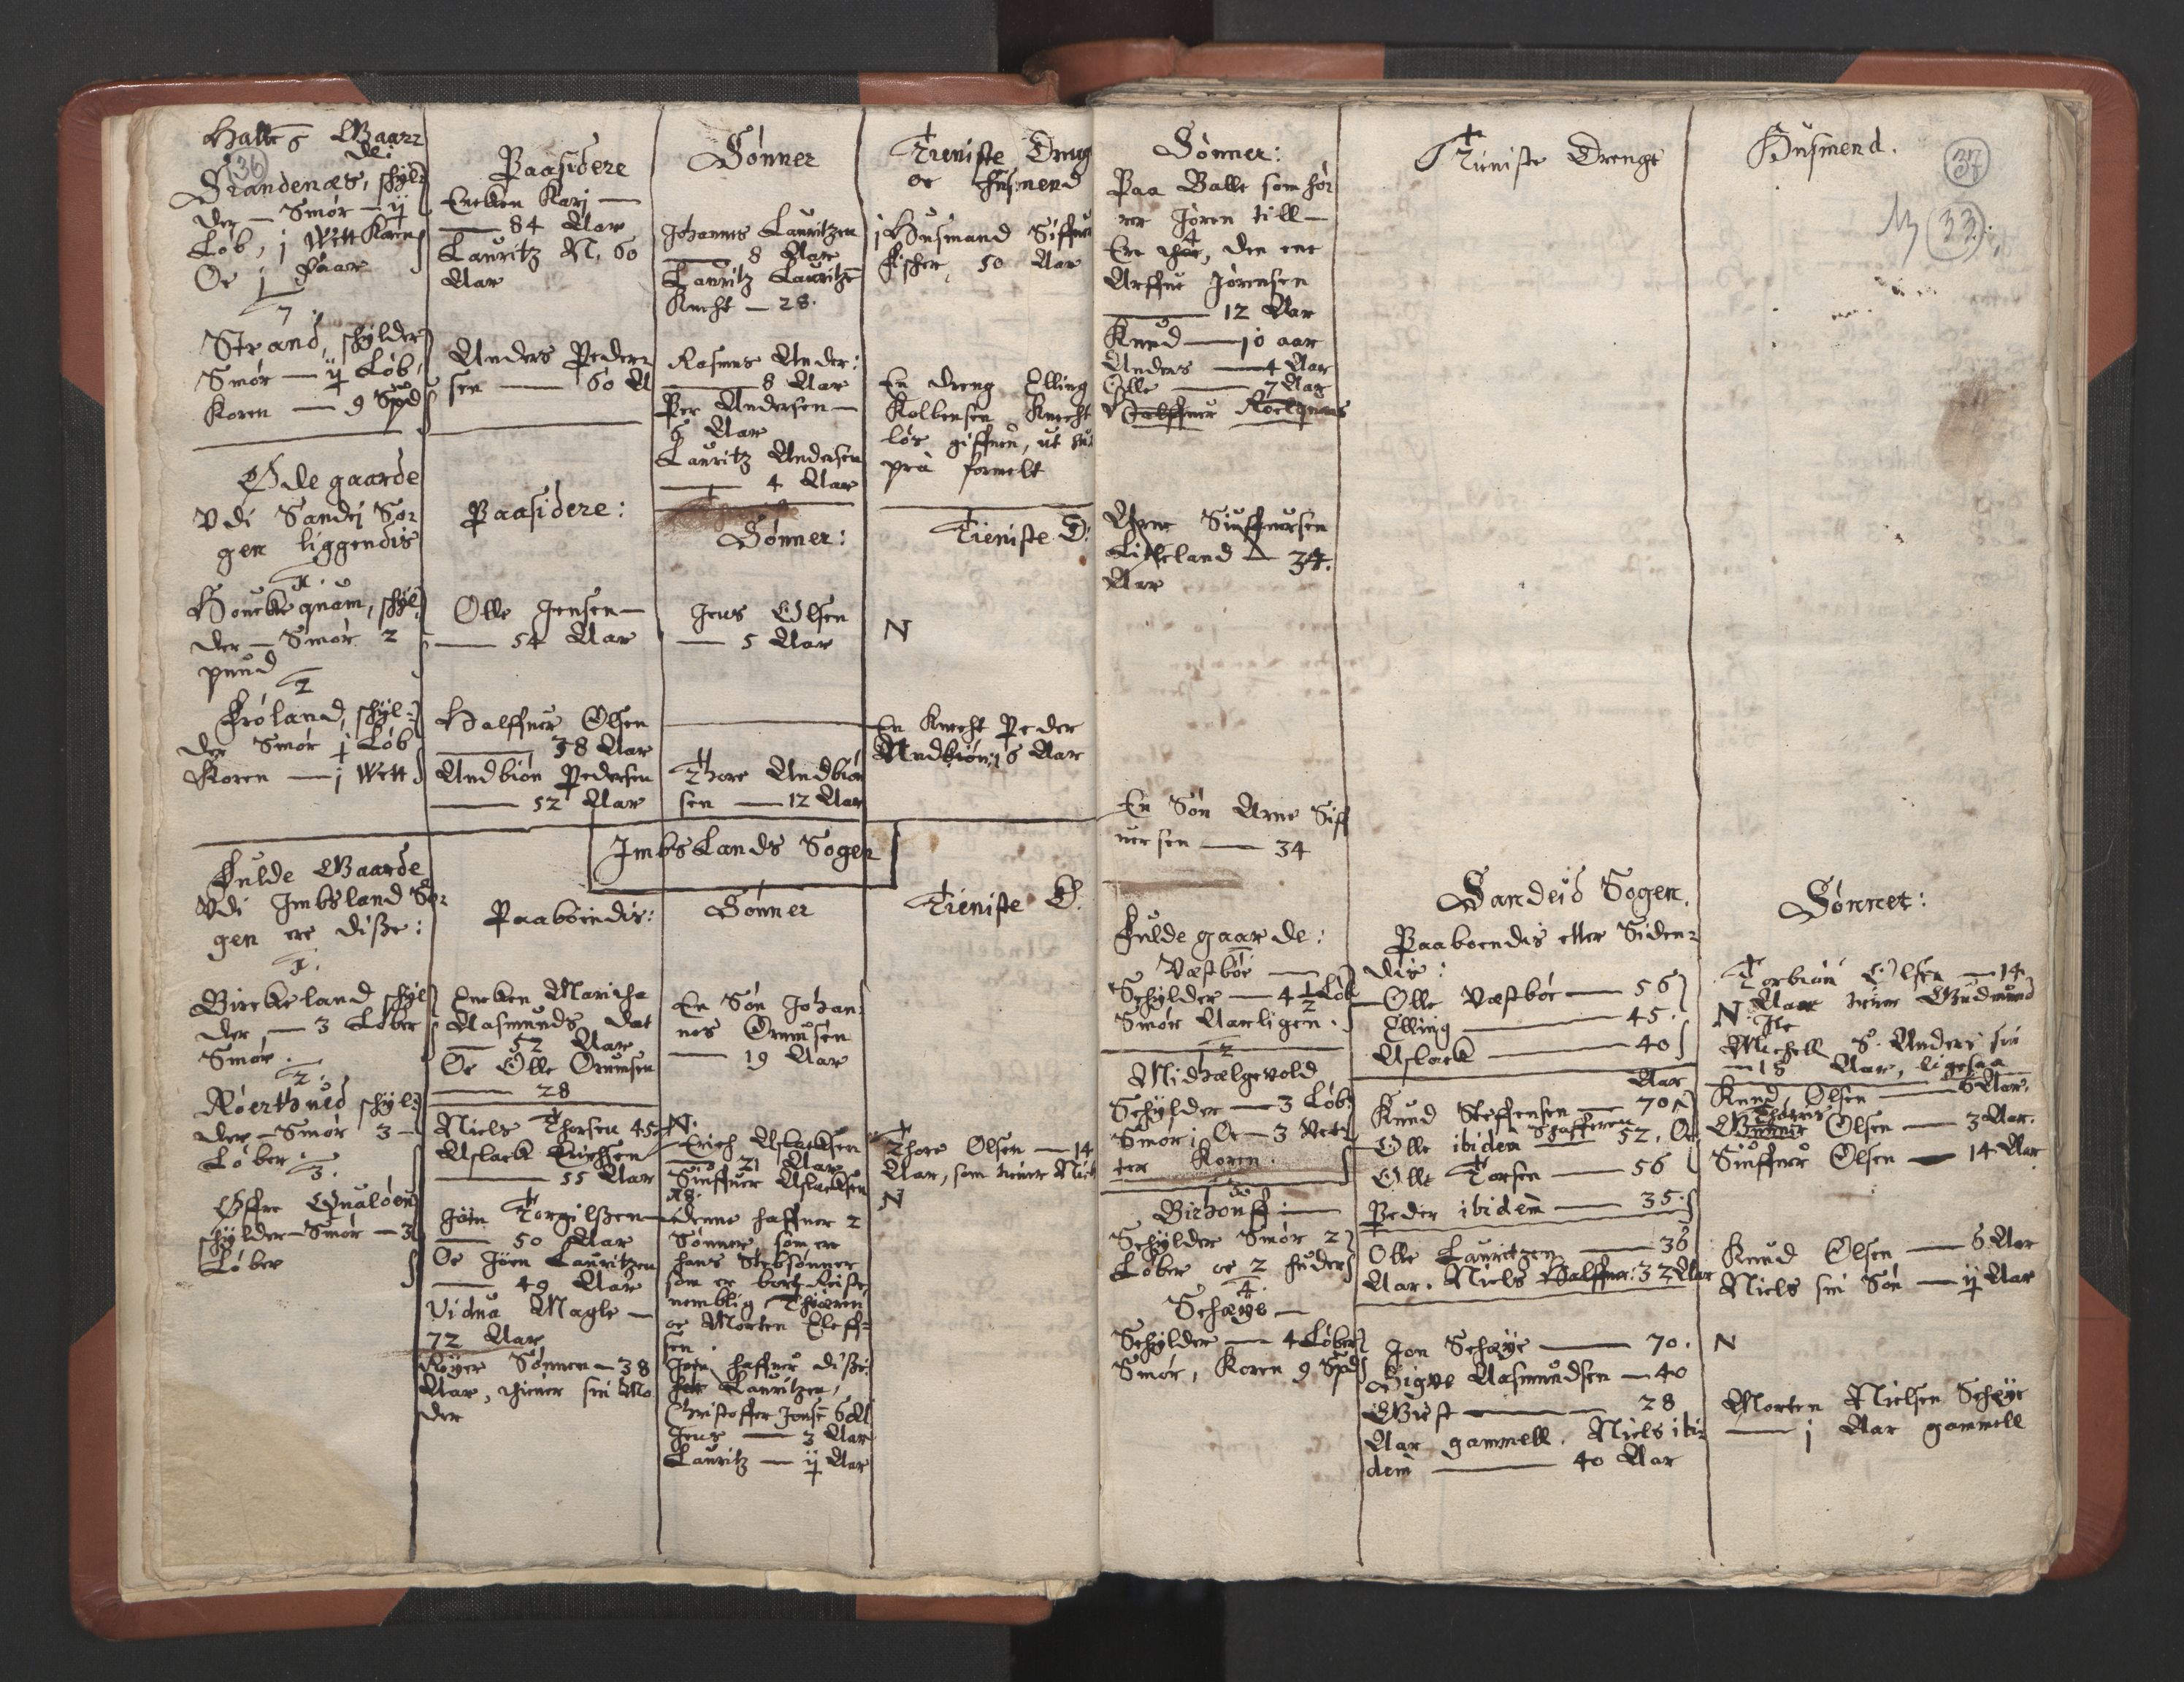 Halle Gaar
de:
36
Brandenæs, schyl:
der — Smór — ij
Lób, j Wett Koren
Oc j faar
7.
Strand, schylder
Smór — ij Lób,
Koren — 9 Spd
Øde gaarde
Vdi Sandej Sor
gen liggendis
1.
der — Smór 2
pund
2
Fróland, schyl:
der Smór j Lób
Koren — j Wett
Fulde Gaarde
Vdi Imbsland So
gen ere diße:
1.
Birckeland schyl
der — 3 Lóber
Smór.
2.
schyl:
der — Smór 3 —
Lóber.
3.
Øffre
schylder — Smór — 3
Lóber
Paasidere
Encken Karj —
— 84 Aar
Lauritz N. 60
Aar
Anders Peder:
sen — 60 A
Paasidere:
Olle Jensen —
— 54 Aar
Halffuer Olsen
— 38 Aar
Andbión Pedersen
— 52 Aar
Imbslands Sogen
Paaboindis:
Encken Maricha
Aasmunds dat
— 52 Aar
Oc Olle Ormsen
— 28
Niels Thorsen 45
Aslack Erichsen
— 55 Aar
Jón Torgilßen
— 50 Aar
Oc Jóen Lauritzen
— 49 Aar
Vidua Magle —
72 Aar
Sónner — 38
Aar, thiener sin Mo
der
Sónner
Johannes Lauritzen
— 8 Aar
Lauritz Lauritzen
Knecht — 28.
Rasmus Ander:
— 8 Aar
Per Andersen —
6 Aar
Lauritz Andersen
— 4 Aar
Sónner:
Jens Olsen
— 5 Aar
Thore Andbión
sen — 12 Aar
Sónner
En Són Johan
nes Ormsen
— 19 Aar
N.
Erich Aslacksen
— 21 Aar
Siuffuer Aslacksen
18.
denne haffuer 2
Sónner, som ere
hans Stebsónner
som er bort Reiste
nemblig
oc Morten Eleff:
sen.
Jóen haffuer diße:
Lauritzen,
Christoffer Jonsen 6 A
Jens — 3 Aar
Lauritz — ij Aar
Tieniste Dreng
oc husmend
j Husmand Siffuer
fisher, 50 Aar
En dreng Elling
Kolbensen Knecht
lós giffuen, ut su
pra formelt
Tieniste D:
N
En Knecht Peder
Andbión: 16 Aar
Tieniste D.
Thore Olsen — 14
Aar, som tiener Niels
N
Sónner:
Paa Valle som hór
rer Jóren till —
Ere 4, den ene
Arffue Jórensen
— 12 Aar
Knud — 10 aar
Anders — 4 Aar
Olle — 7 Aar
Arne Siuffuersen
Litleland — 34.
Aar
En Són Arne Siff
uersen — 34
Fulde gaarde:
Væstbóe —
Schylder — 4 1/2 Lób
Smór Aarligen.
2
Midhælgevold
Schylder — 3 Lób:
Smór: Oc — 3 Vet:
ter Koren.
3
Schylder Smór 2
Lóber oc 2 huder
4.
Schæye —
Schylder — 4 Lóber
Smór, Koren 9 Spd
Tieniste Drenge
Sandeid Sogen.
Paaboendis eller Siden:
dis:
Olle Væstbóe — 56
Elling — 45.
Aslack — 40
Aar
Knud Steffensen — 70
Olle ibidem — 52. Oc
Olle Torsen — 56
Peder ibidem — 35.
Olle Lauritzen — 36
Aar. Niels Halffuer: 32 Aar
Jon Schæye — 70.
Sigve Aasmundsen — 40
Giest — 28
Aar gammell. Niels ibi:
dem — 40 Aar
Husmend.
37
33
Sónner:
Torbión Olsen — 14
N Aar tiener Gudmund
Michell S. Anders sin
— 15 Aar, ligesaa
Knud Olsen — 6 Aar.
Olsen — 3 Aar.
Siuffuer Olsen — 14 Aar
Knud Olsen — 6 Aar
Niels sin Són — ij Aar
N
Morten Nielsen Schæye
— j Aar gammell